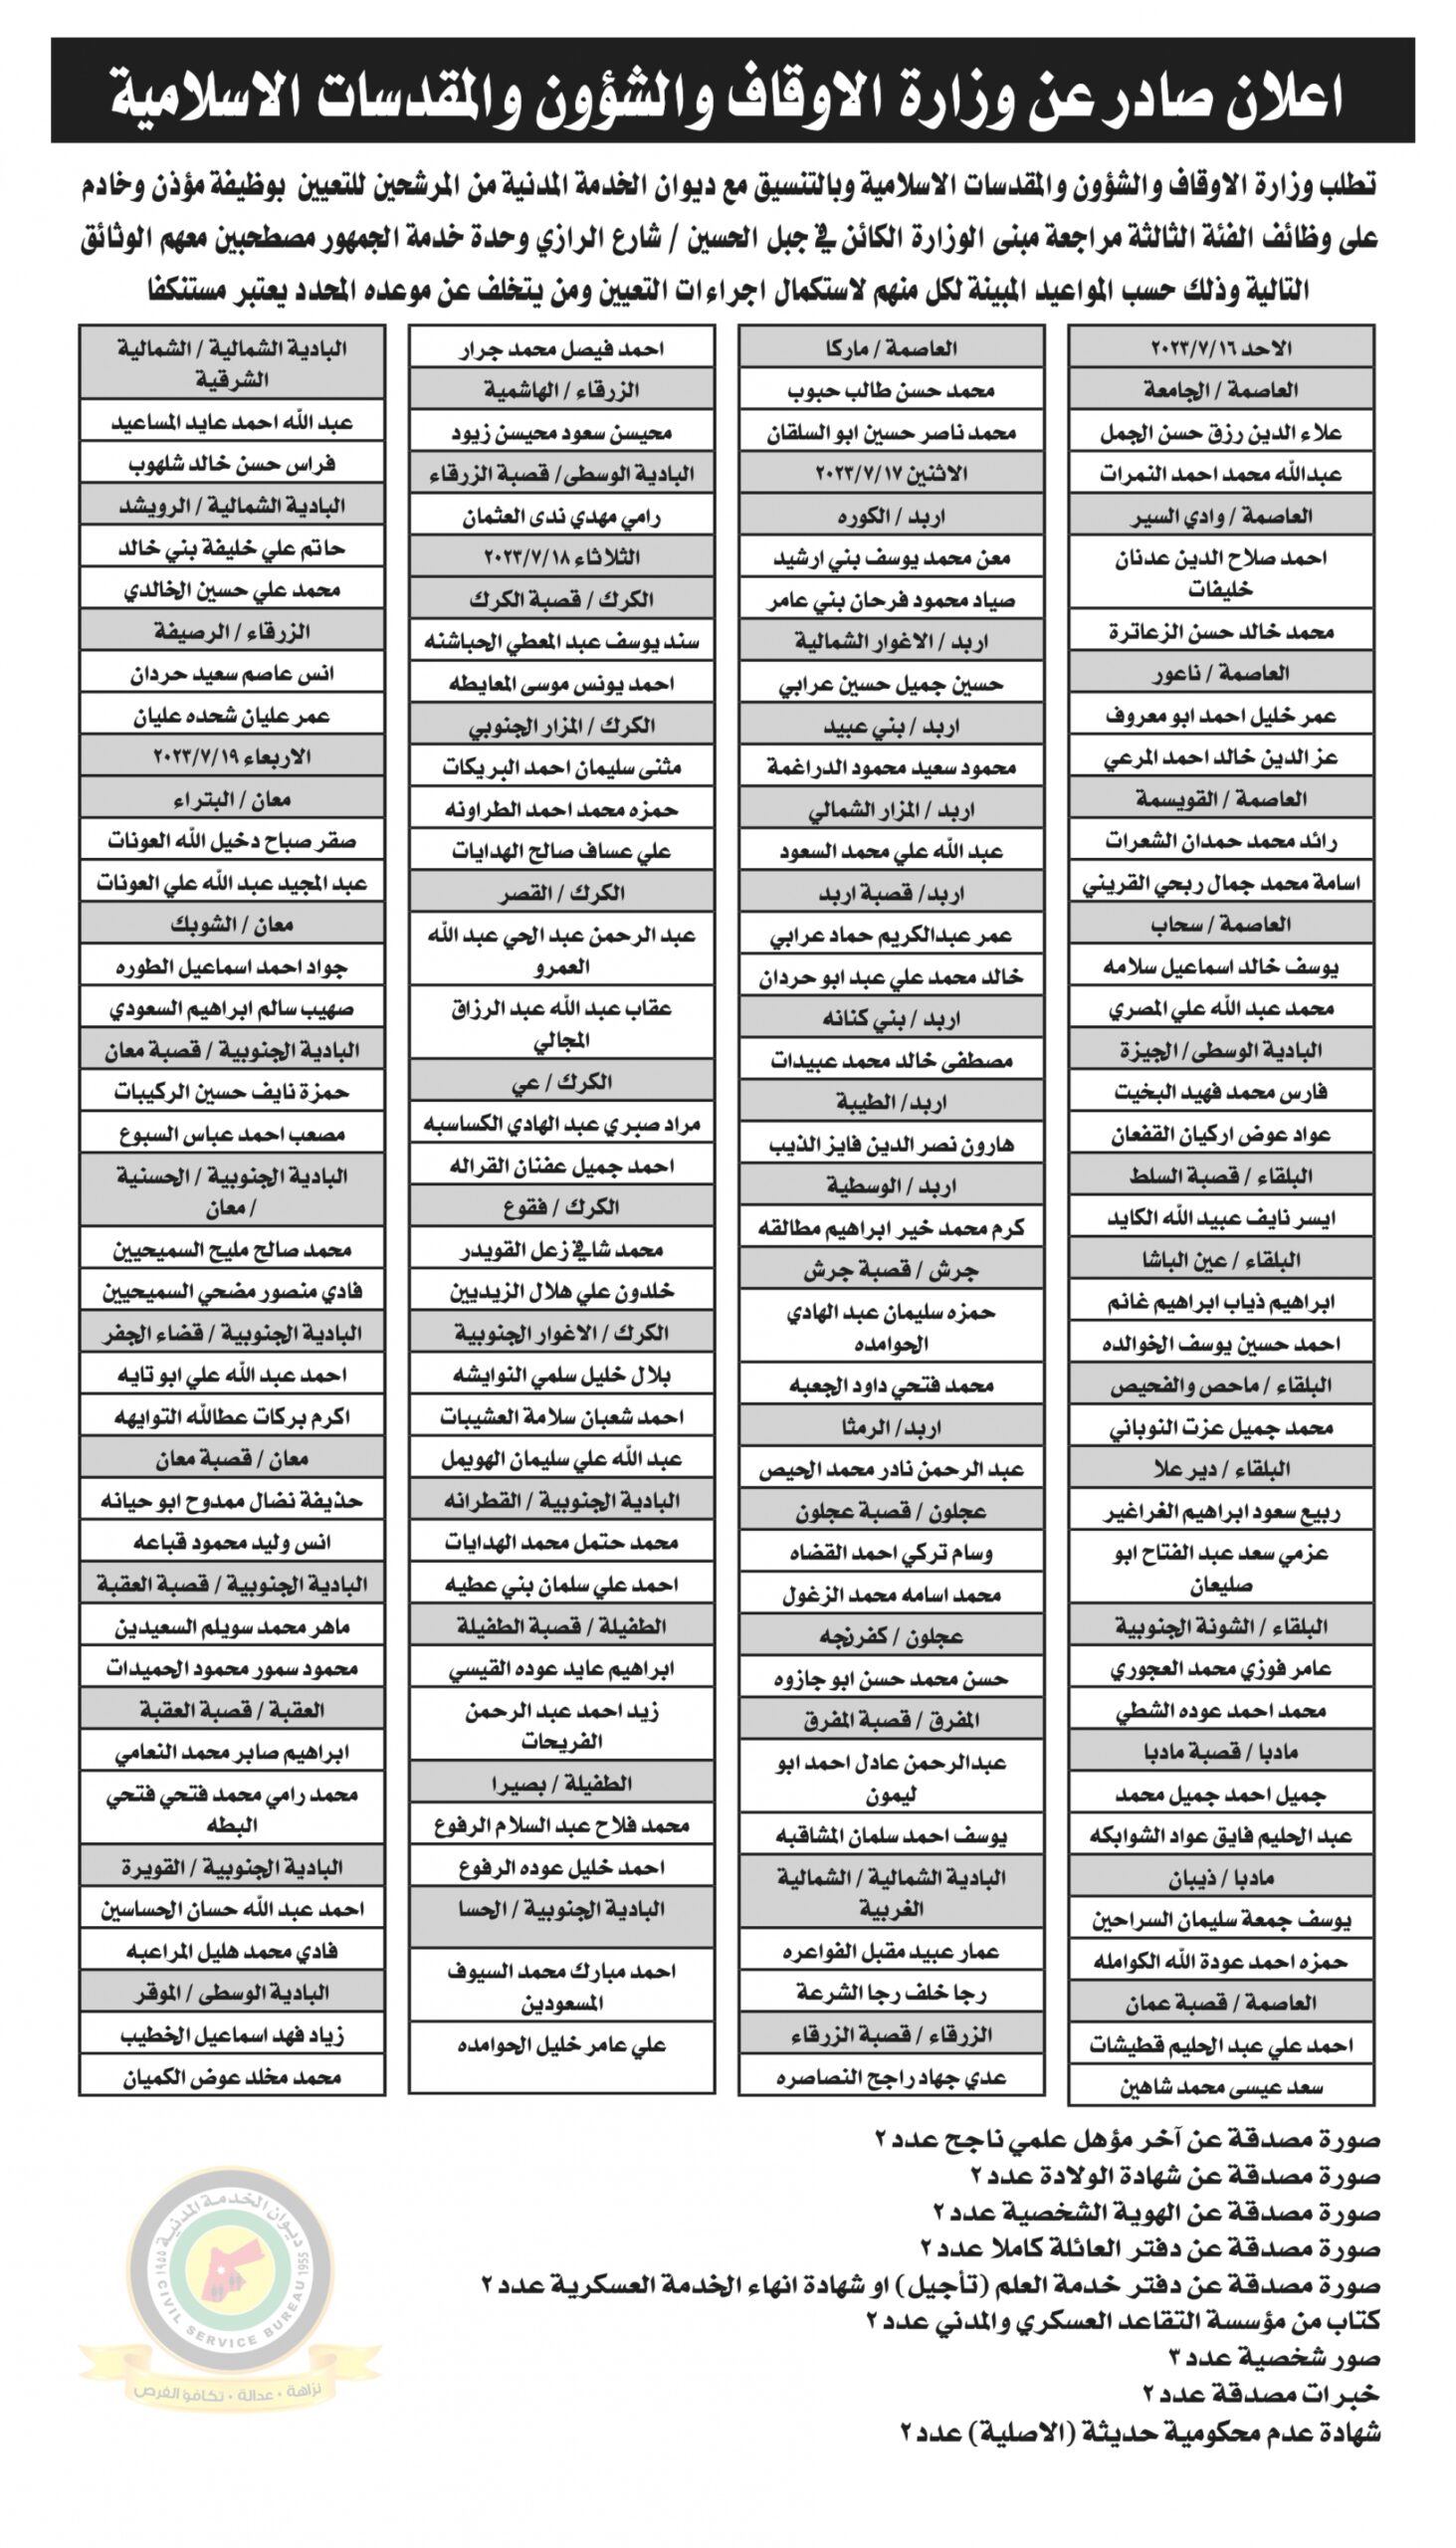 اعلان صادر عن وزارة الاوقاف والشؤون والمقدسات الاسلامية
تطلب وزارة الاوقاف والشؤون والمقدسات الاسلامية وبالتنسيق مع ديوان الخدمة المدنية من المرشحين للتعيين بوظيفة مؤذن وخادم
على وظائف الفئة الثالثة مراجعة مبنى الوزارة الكائن في جبل الحسين / شارع الرازي وحدة خدمة الجمهور مصطحبين معهم الوثائق
التالية وذلك حسب المواعيد المبينة لكل منهم لاستكمال اجراءات التعيين ومن يتخلف عن موعده المحدد يعتبر مستنكفا
الاحد ٢٠٢٣/٧/١٦
العاصمة / الجامعة
علاء الدين رزق حسن الجمل
عبدالله محمد احمد النمرات
العاصمة / وادي السير
احمد صلاح الدين عدنان
خليفات
محمد خالد حسن الزعاترة
العاصمة / ناعور
عمر خليل احمد ابو معروف
عز الدين خالد احمد المرعي
العاصمة / القويسمة
رائد محمد حمدان الشعرات
اسامة محمد جمال ربحي القريني
العاصمة / سحاب
يوسف خالد اسماعيل سلامه
محمد عبد الله علي المصري
البادية الوسطى / الجيزة
فارس محمد فهيد البخيت
عواد عوض اركيان القفعان
البلقاء / قصبة السلط
ايسر نايف عبيد الله الكايد
البلقاء / عين الباشا
ابراهيم ذياب ابراهيم غانم
احمد حسين يوسف الخوالده
البلقاء / ماحص والفحيص
محمد جميل عزت النوباني
البلقاء / دير علا
ربيع سعود ابراهيم الغراغير
عزمي سعد عبد الفتاح ابو
صليعان
البلقاء / الشونة الجنوبية
عامر فوزي محمد العجوري
محمد احمد عوده الشطي
مادبا / قصبة مادبا
جميل احمد جميل محمد
عبد الحليم فايق عواد الشوابكه
مادبا / ذيبان
يوسف جمعة سليمان السراحين
حمزه احمد عودة الله الكوامله
العاصمة / قصبة عمان
احمد علي عبد الحليم قطيشات
سعد عيسى محمد شاهين
العاصمة / ماركا
محمد حسن طالب حبوب
محمد ناصر حسين ابو السلقان
الاثنين ٢٠٢٣/٧/١٧
اربد / الكوره
معن محمد يوسف بني ارشيد
صياد محمود فرحان بني عامر
اربد / الاغوار الشمالية
حسين جميل حسين عرابي
اربد / بني عبيد
محمود سعيد محمود الدراغمة
اربد / المزار الشمالي
عبد الله علي محمد السعود
اربد/ قصبة اربد
عمر عبدالكريم حماد عرابي
خالد محمد علي عبد ابو حردان
اربد / بني كنانه
مصطفى خالد محمد عبيدات
اربد/ الطيبة
هارون نصر الدين فايز الذيب
اربد / الوسطية
كرم محمد خير ابراهيم مطالقه
جرش / قصبة جرش
حمزه سليمان عبد الهادي
الحوامده
محمد فتحي داود الجعبه
اربد/ الرمثا
عبد الرحمن نادر محمد الحيص
عجلون / قصبة عجلون
وسام تركي احمد القضاه
محمد اسامه محمد الزغول
عجلون / كفرنجه
حسن محمد حسن ابو جازوه
المفرق / قصبة المفرق
عبدالرحمن عادل احمد ابو
ليمون
يوسف احمد سلمان المشاقبه
البادية الشمالية / الشمالية
الغربية
عمار عبيد مقبل الفواعره
رجا خلف رجا الشرعة
الزرقاء / قصبة الزرقاء
عدي جهاد راجح النصاصره
احمد فيصل محمد جرار
الزرقاء / الهاشمية
محيسن سعود محيسن زيود
البادية الوسطى/ قصبة الزرقاء
رامي مهدي ندى العثمان
الثلاثاء ٢٠٢٣/٧/١٨
الكرك / قصبة الكرك
سند يوسف عبد المعطي الحباشنه
احمد يونس موسى المعايطه
الكرك / المزار الجنوبي
مثنى سليمان احمد البريكات
حمزه محمد احمد الطراونه
علي عساف صالح الهدايات
الكرك / القصر
عبد الرحمن عبد الحي عبد الله
العمرو
عقاب عبد الله عبد الرزاق
المجالي
الكرك / عي
مراد صبري عبد الهادي الكساسبه
احمد جميل عفنان القراله
الكرك / فقوع
محمد شافي زعل القويدر
خلدون علي هلال الزيديين
الكرك / الاغوار الجنوبية
بلال خليل سلمي النوايشه
احمد شعبان سلامة العشيبات
عبد الله علي سليمان الهويمل
البادية الجنوبية / القطرانه
محمد حتمل محمد الهدايات
احمد علي سلمان بني عطيه
الطفيلة / قصبة الطفيلة
ابراهيم عايد عوده القيسي
زيد احمد عبد الرحمن
الفريحات
الطفيلة / بصيرا
محمد فلاح عبد السلام الرفوع
احمد خليل عوده الرفوع
البادية الجنوبية / الحسا
احمد مبارك محمد السيوف
المسعودين
علي عامر خليل الحوامده
البادية الشمالية / الشمالية
الشرقية
عبد الله احمد عايد المساعيد
فراس حسن خالد شلهوب
البادية الشمالية / الرويشد
حاتم علي خليفة بني خالد
محمد علي حسين الخالدي
الزرقاء / الرصيفة
انس عاصم سعيد حردان
عمر عليان شحده عليان
الاربعاء ٢٠٢٣/٧/١٩
معان / البتراء
صقر صباح دخيل الله العونات
عبد المجيد عبد الله علي العونات
معان / الشوبك
جواد احمد اسماعيل الطوره
صهيب سالم ابراهيم السعودي
البادية الجنوبية / قصبة معان
حمزة نايف حسين الركيبات
مصعب احمد عباس السبوع
البادية الجنوبية / الحسنية
/ معان
محمد صالح مليح السميحيين
فادي منصور مضحي السميحيين
البادية الجنوبية / قضاء الجفر
احمد عبد الله علي ابو تايه
اكرم بركات عطالله التوايهه
معان / قصبة معان
حذيفة نضال ممدوح ابو حيانه
انس وليد محمود قباعه
البادية الجنوبية / قصبة العقبة
ماهر محمد سويلم السعيدين
محمود سمور محمود الحميدات
العقبة / قصبة العقبة
ابراهيم صابر محمد النعامي
محمد رامي محمد فتحي فتحي
البطه
البادية الجنوبية / القويرة
احمد عبد الله حسان الحساسين
فادي محمد هليل المراعبه
البادية الوسطى / الموقر
زياد فهد اسماعيل الخطيب
محمد مخلد عوض الكميان
صورة مصدقة عن آخر مؤهل علمي ناجح عدد ٢
صورة مصدقة عن شهادة الولادة عدد ٢
صورة مصدقة عن الهوية الشخصية عدد ٢
صورة مصدقة عن دفتر العائلة كاملا عدد ٢
صورة مصدقة عن دفتر خدمة العلم (تأجيل) او شهادة انهاء الخدمة العسكرية عدد ٢
كتاب من مؤسسة التقاعد العسكري والمدني عدد ٢
صور شخصية عدد ٣
خبرات مصدقة عدد ٢
شهادة عدم محكومية حديثة (الاصلية) عدد ٢
ديوان الخدمة المدنية
١٩٥٥ CIVIL SERVICE BUREAU 1955
نزاهة · عدالة · تكافؤ الفرص